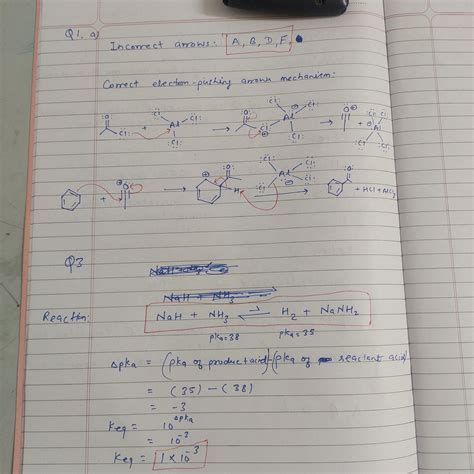 Q1. a)
Incorrect arrows: A, B, D, F.
Correct electron-pushing arrows mechanism:
O Cl + Cl Al Cl Cl → O Cl Al Cl Cl Cl → O + Cl Al Cl Cl Cl
+ O → O H Cl Al Cl Cl Cl → O + HCl + AlCl3
Q3
NaH + NH3
Reaction: NaH + NH3 ⇌ H2 + NaNH2
pka=38 pka=35
Δpka = (pka of product acid)-(pka of reactant acid)
= (35) - (38)
= -3
Keq = 10^Δpka
= 10^-3
Keq = 1 × 10^-3